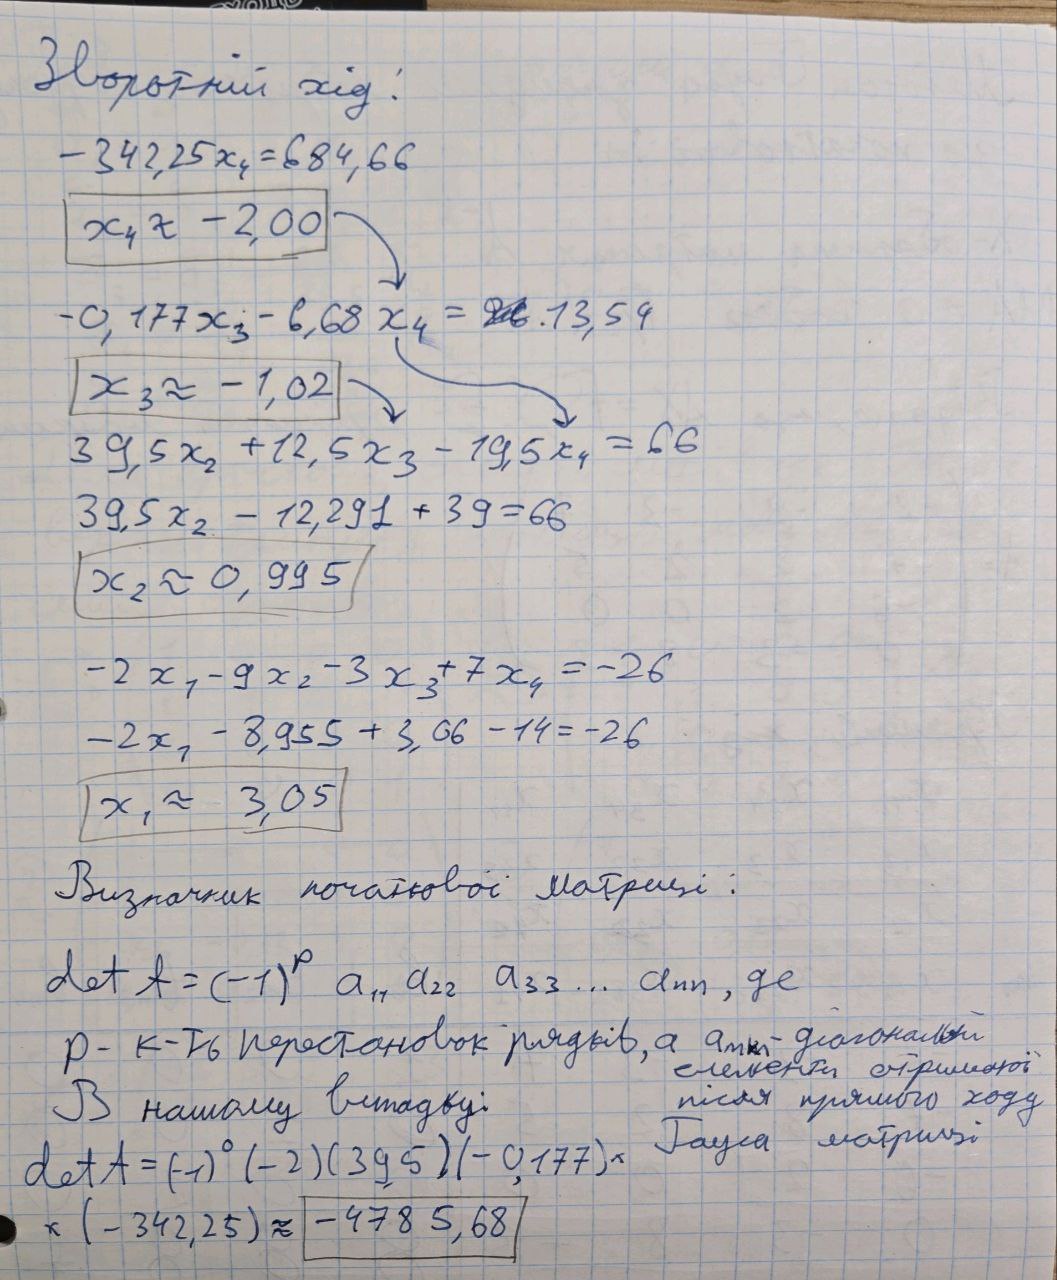 Зворотній хід:
-342,25x₄ = 684,66
x₄ ≈ -2,00
-0,177x₃ - 6,68x₄ = 13,54
x₃ ≈ -1,02
39,5x₂ + 12,5x₃ - 19,5x₄ = 66
39,5x₂ - 12,291 + 39 = 66
x₂ ≈ 0,995
-2x₁ - 9x₂ - 3x₃ + 7x₄ = -26
-2x₁ - 8,955 + 3,06 - 14 = -26
x₁ ≈ 3,05
Визначник початкової матриці:
det A = (-1)ᵖ a₁₁ a₂₂ a₃₃ ... aₙₙ, де
p - к-ть перестановок рядків, а aₙₙ - діагональні
елементи отриманої
після прямого ходу
Гауса матриці
В нашому випадку:
det A = (-1)⁰ (-2)(39,5)(-0,177)×
× (-342,25) ≈ -4785,68